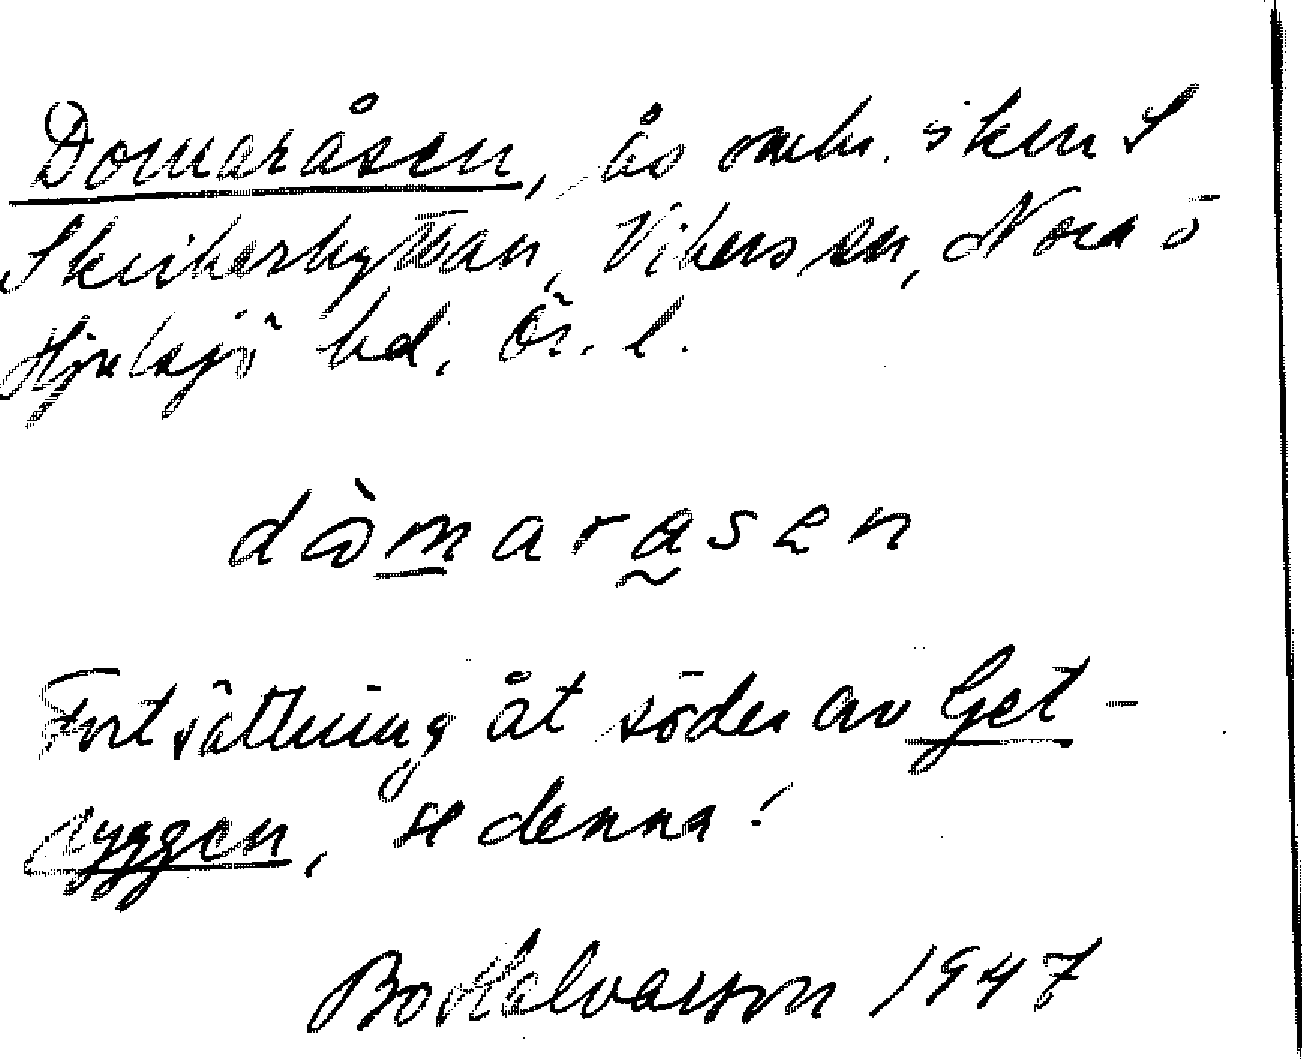 Domaråsen, ås omkr. 1 km S
Skrikarhyttan, Vikers sn, Nora o
Hjulsjö bd, Ör. l.
dòmarasen
Fortsättning åt söder av Get-
ryggen, se denna!
Bo Halvarson 1947